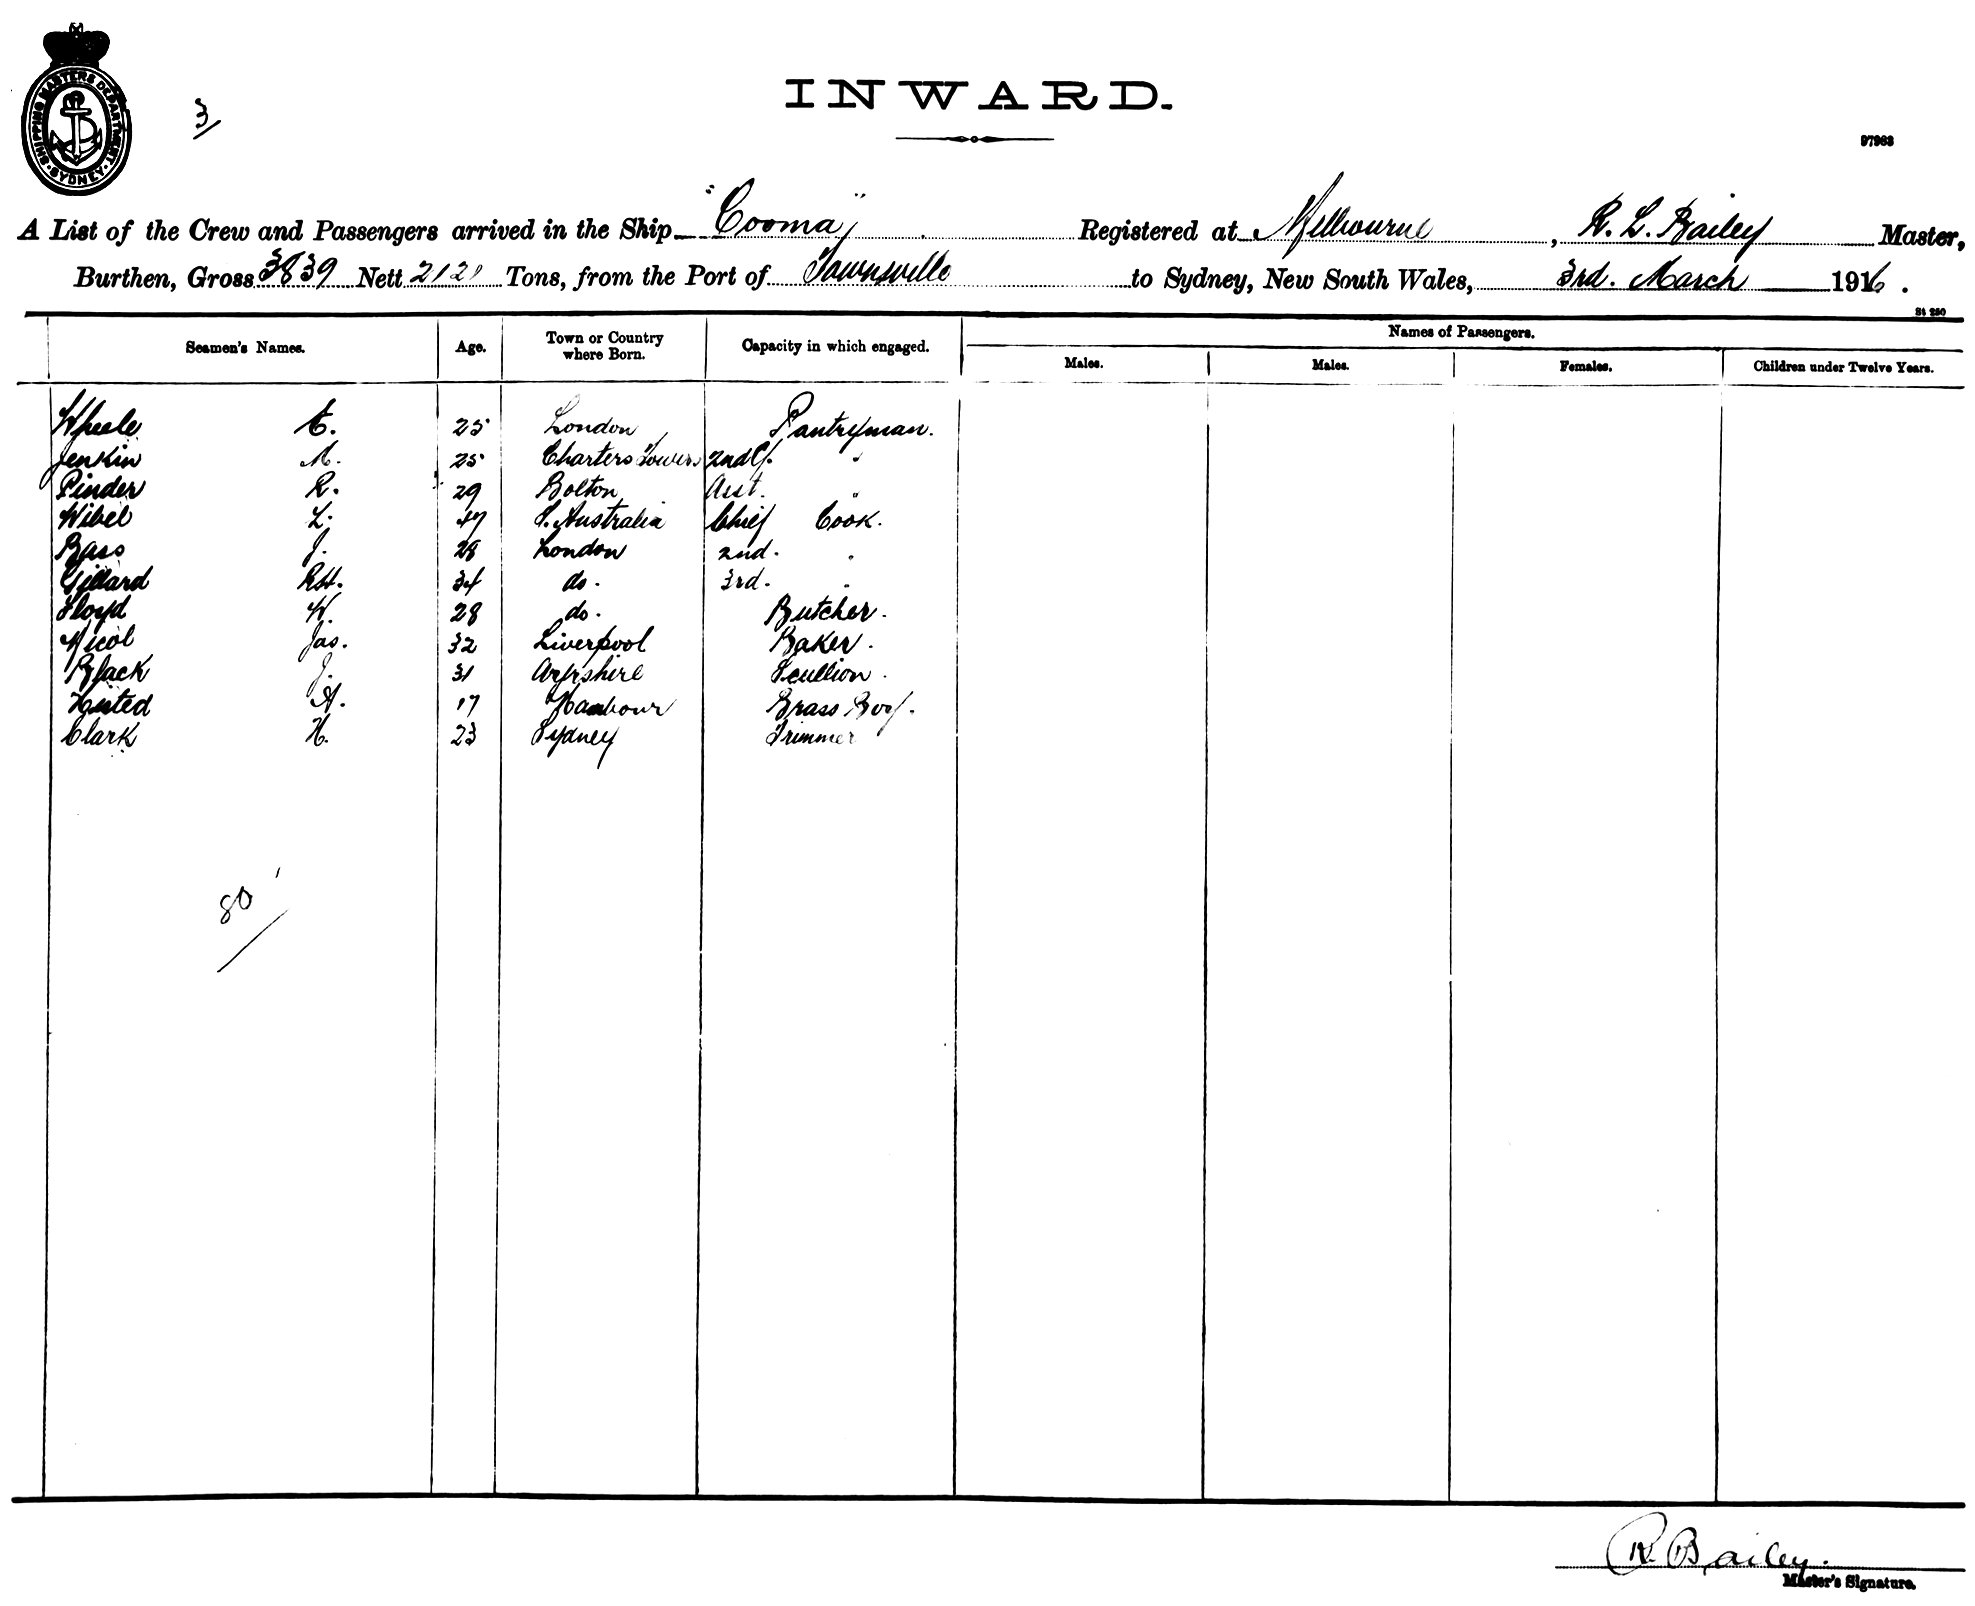 SHIPPING MASTERS DEPARTMENT · SYDNEY ·
3/
INWARD.
97963
A List of the Crew and Passengers arrived in the Ship "Cooma" Registered at Melbourne, R. L. Bailey Master,
Burthen, Gross 3839 Nett 2121 Tons, from the Port of Townsville to Sydney, New South Wales, 3rd. March 1916.
St 250
Seamen's Names. Age. Town or Country where Born. Capacity in which engaged. Names of Passengers.
Males. Males. Females. Children under Twelve Years.
25 London Pantryman.
Jenkin M. 25 Charters Towers 2nd "
Pinder R. 29 Bolton Asst. "
Wibel L. 47 S. Australia Chief Cook.
Bass J. 28 London 2nd. "
Gillard R.H. 34 do. 3rd. "
Floyd W. 28 do. Butcher.
Nicol Jas. 32 Liverpool Baker.
Black J. 31 Ayrshire Scullion.
A. 17 Brass Boy.
Clark H. 23 Sydney Trimmer
80
R. Bailey.
Master's Signature.